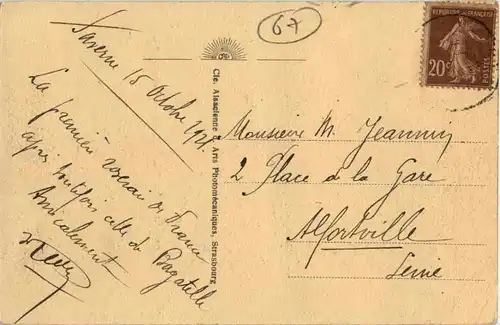 67
Saverne 15 Octobre 192
La première roseraie de France
après toutefois celle de Bagatelle
Amicalement
Cie. Alsacienne d. Arts Photomécaniques, Strasbourg
REPUBLIQUE FRANÇAISE
20c
POSTES
Monsieur M. Jeannin
2 Place de la Gare
Alfortville
Seine